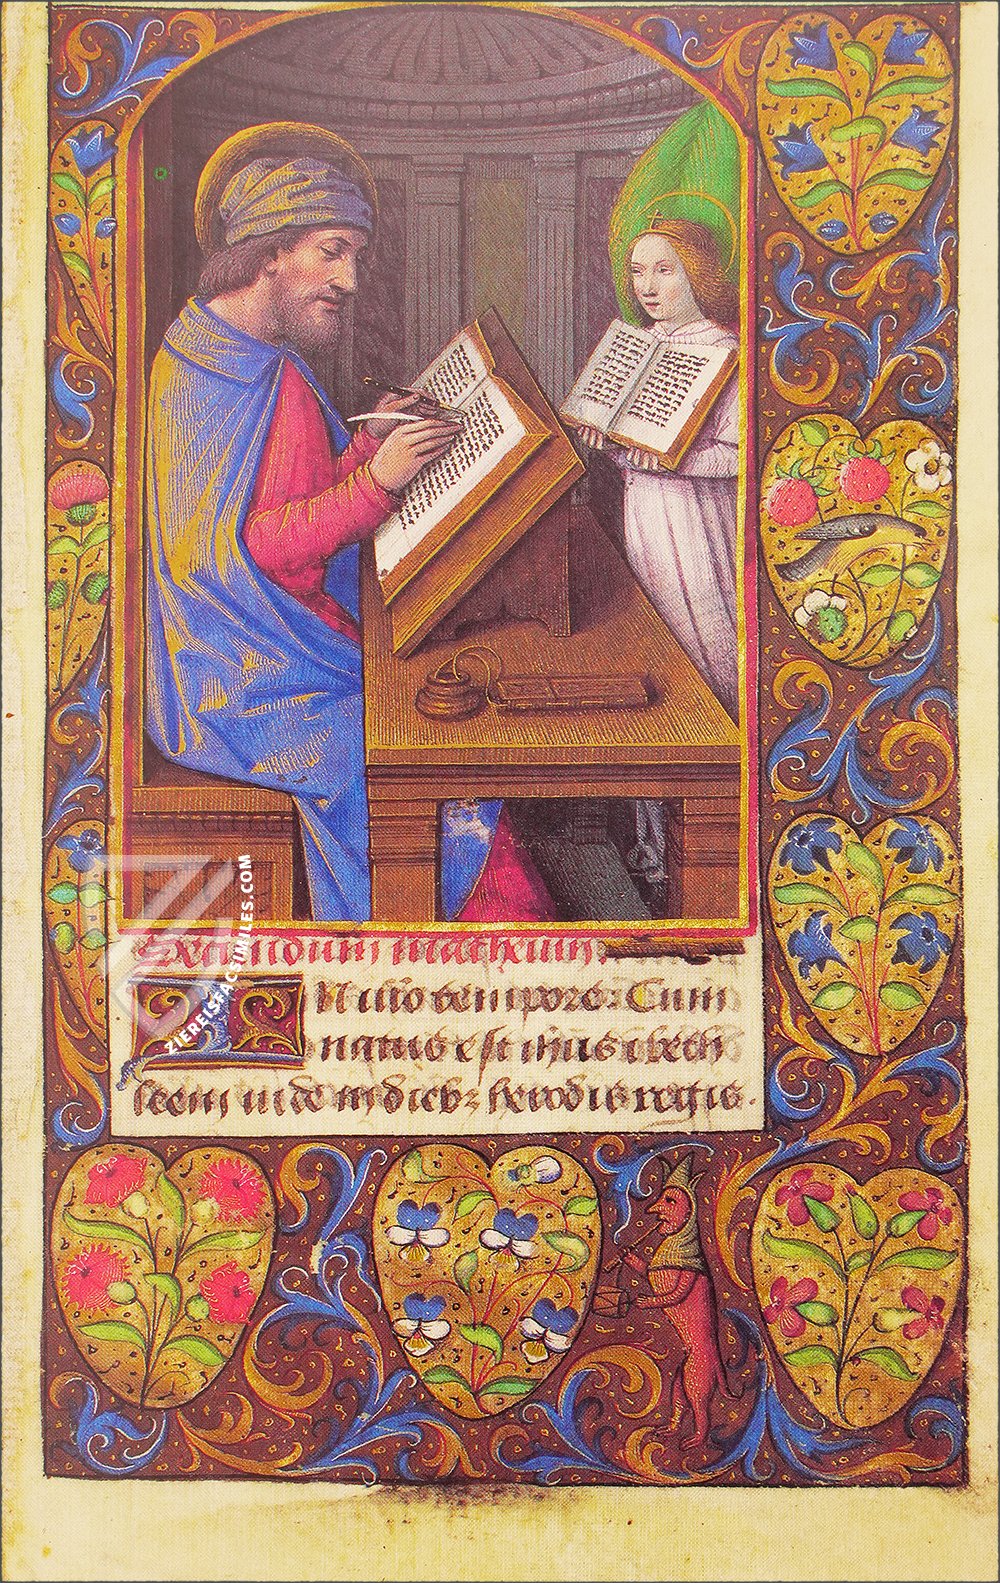 Secundum matheum.
IN illo tempore: Cum
natus esset ihus i bech
leem iude in dieb₂ herodis regis.
ZIEREISFACSIMILES.COM